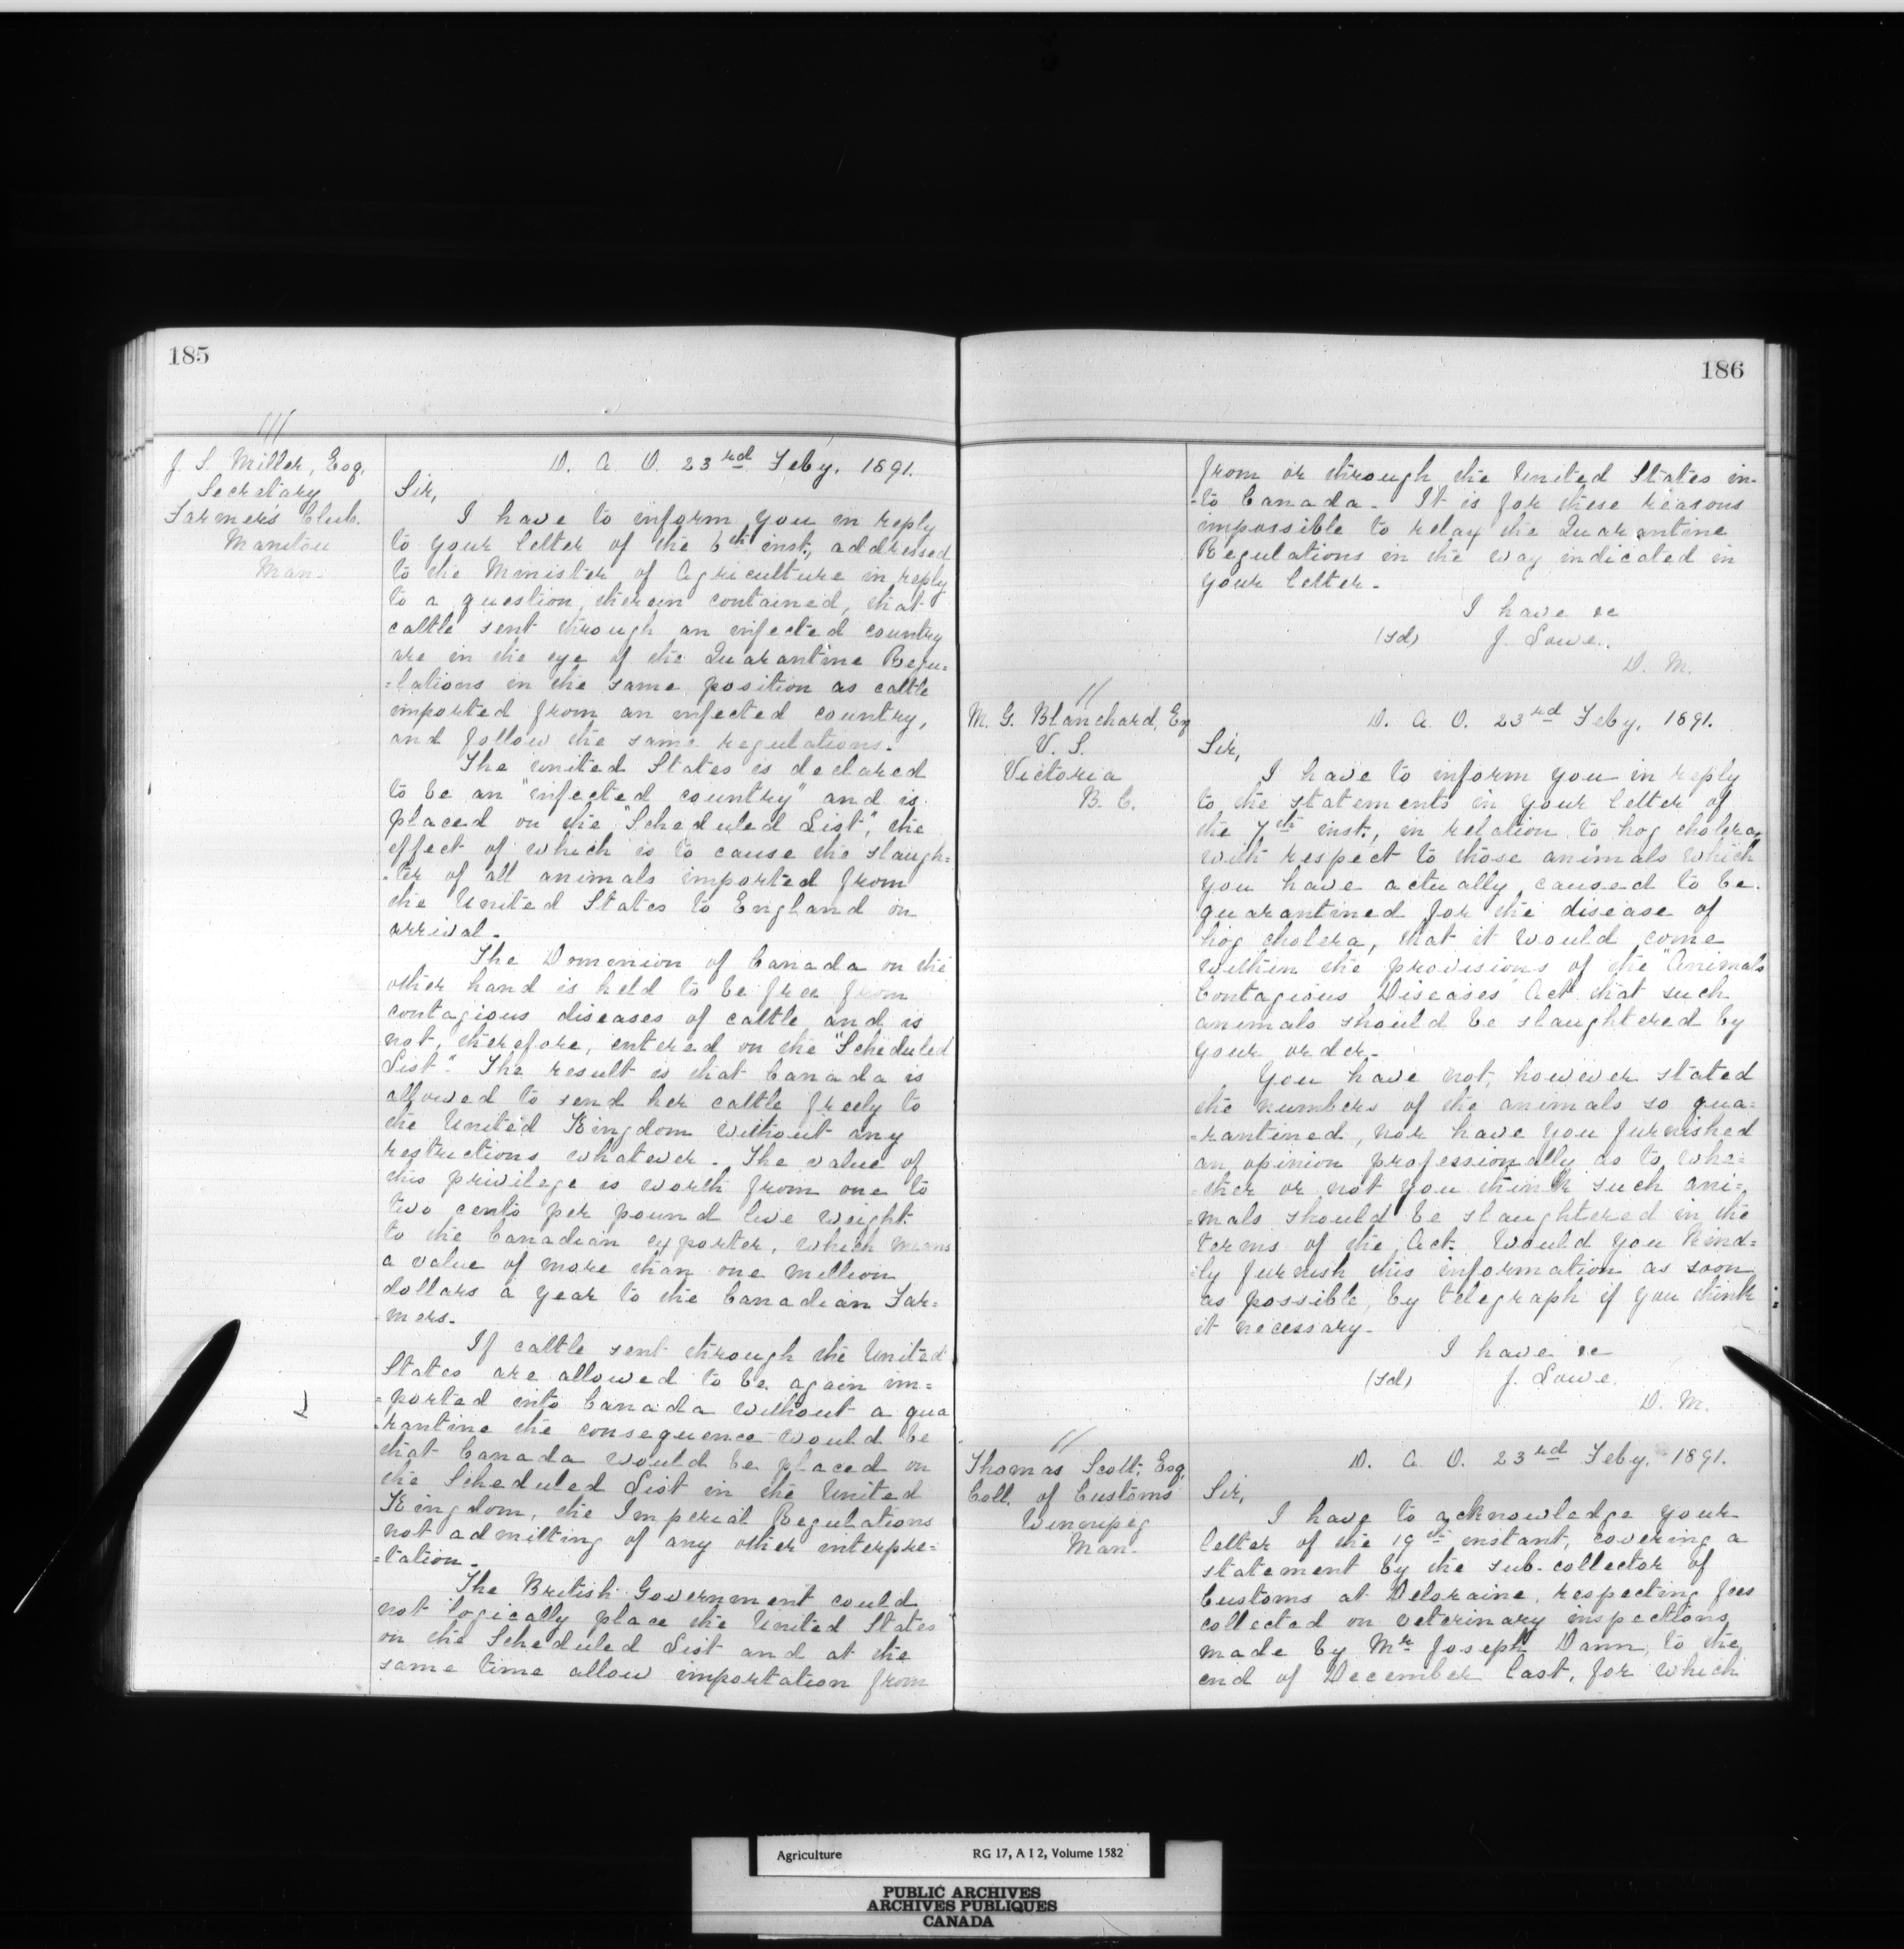 185
///
J. S. Miller, Esq.
Secretary
Farmer's Club.
Manitou
Man.
D. A. O. 23rd Feby. 1891.
Sir,
I have to inform you in reply
to your letter of the 6th inst., addressed
to the Minister of Agriculture in reply
to a question therein contained, that
cattle sent through an infected country
are in the eye of the Quarantine Regu=
=lations in the same position as cattle
imported from an infected country,
and follow the same regulations.
The United States is declared
to be an "infected country" and is
placed on the "Scheduled List", the
effect of which is to cause the slaugh=
-ter of all animals imported from
the United States to England on
arrival.
The Dominion of Canada on the
other hand is held to be free from
contagious diseases of cattle and is
not, therefore, entered on the "Scheduled
List". The result is that Canada is
allowed to send her cattle freely to
the United Kingdom without any
restrictions whatever. The value of
this privilege is worth from one to
two cents per pound live weight
to the Canadian exporter, which means
a value of more than one million
dollars a year to the Canadian Far=
-mers.
If cattle sent through the United
States are allowed to be again im=
=ported into Canada without a qua
-rantine the consequence would be
that Canada would be placed on
the Scheduled List in the United
Kingdom, the Imperial Regulations
not admitting of any other interpre=
=tation.
The British Government could
not logically place the United States
on the Scheduled List and at the
same time allow importation from
186
from or through the United States in-
-to Canada. It is for these reasons
impossible to relax the Quarantine
Regulations in the way indicated in
your letter.
I have &c
(sd) J. Lowe.
D. M.
//
M. G. Blanchard, Esq
V. S.
Victoria
B. C.
D. A. O. 23rd Feby. 1891.
Sir,
I have to inform you in reply
to the statements in your letter of
the 7th inst., in relation to hog cholera,
with respect to those animals which
you have actually caused to be
quarantined for the disease of
hog cholera, that it would come
within the provisions of the "Animals
Contagious Diseases" Act that such
animals should be slaughtered by
your order.
You have not, however stated
the numbers of the animals so qua=
-rantined, nor have you furnished
an opinion professionally as to whe=
-ther or not you think such ani=
=mals should be slaughtered in the
terms of the Act. Would you kind=
-ly furnish this information as soon
as possible, by telegraph if you think
it necessary.
I have &c
(sd) J. Lowe.
D. M.
//
Thomas Scott, Esq.
Coll. of Customs
Winnipeg
Man.
D. A. O. 23rd Feby. 1891.
Sir,
I have to acknowledge your
letter of the 19th instant, covering a
statement by the sub-collector of
Customs at Deloraine, respecting fees
collected on veterinary inspections
made by Mr. Joseph Dann, to the
end of December last, for which
Agriculture RG 17, A I 2, Volume 1582
PUBLIC ARCHIVES
ARCHIVES PUBLIQUES
CANADA